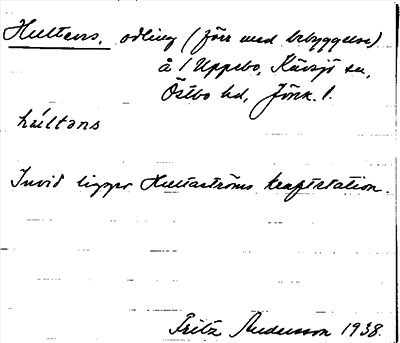 Hultens. odling (förr med bebyggelse)
å 1 Uppebo, Kävsjö sn,
Östbo hd, Jönk. l.
hultəns
Invid ligger Hultaströms kraftstation.
Fritz Andersson 1938.